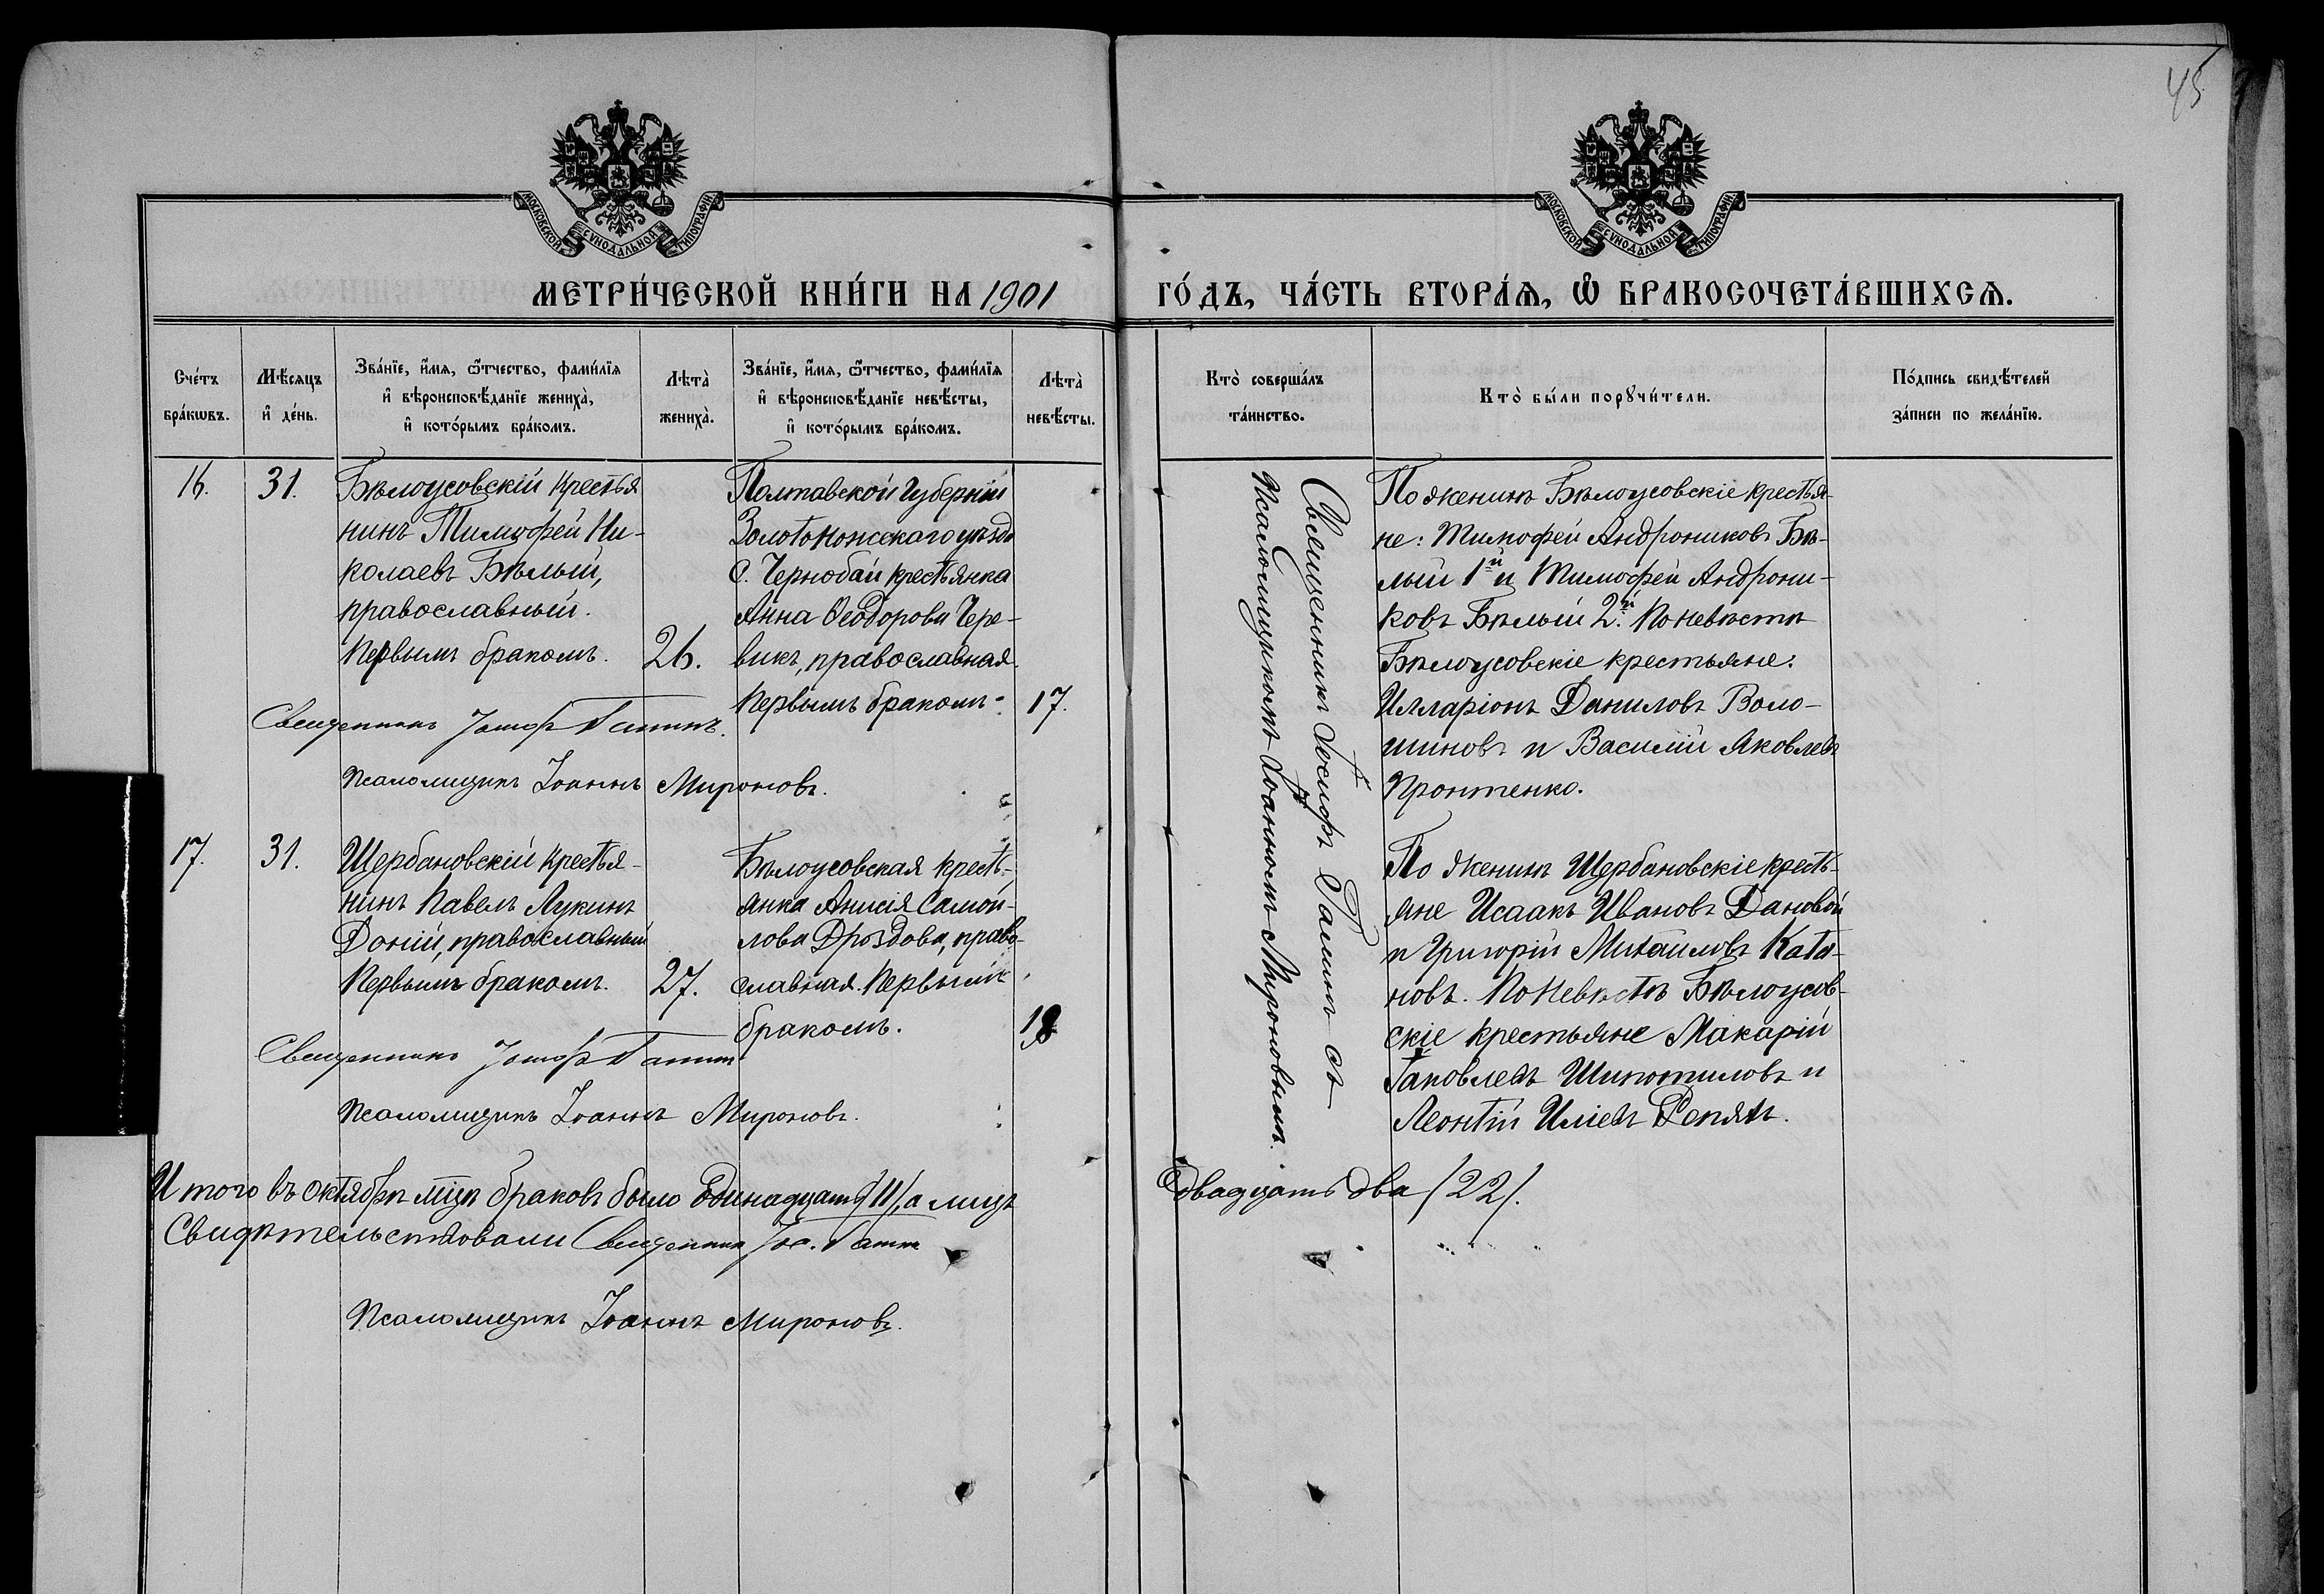 45
МОСКОВСКОЙ СѴНОДАЛЬНОЙ ТИПОГРАФІИ
МОСКОВСКОЙ СѴНОДАЛЬНОЙ ТИПОГРАФІИ
МЕТРИ́ЧЕСКОЙ КНИ́ГИ НА 1901
ГО́ДЪ, ЧА́СТЬ ВТОРА́Ѧ, Ѽ БРАКОСОЧЕТА́ВШИХСѦ.
Сче́тъ
бра́кѡвъ.
Мѣ́сяцъ
и҆ де́нь.
Зва́нїе, и҆́мѧ, ѻ҆́тчество, фами́лїѧ
и҆ вѣроисповѣ́данїе жениха̀,
и҆ кото́рымъ бра́комъ.
Лѣта̀
жениха̀.
Зва́нїе, и҆́мѧ, ѻ҆́тчество, фами́лїѧ
и҆ вѣроисповѣ́данїе невѣ́сты,
и҆ кото́рымъ бра́комъ.
Лѣта̀
невѣ́сты.
Кто̀ соверша́лъ
та́инство.
Кто̀ бы́ли порꙋчи́тели.
По́дпись свидѣ́телей
за́писи по жела́нїю.
16.
31.
Бѣлоусовскій крестья
нинъ Тимофей Ни-
колаевъ Бѣлый,
православный.
Первымъ бракомъ.
26.
Полтавской Губерніи
Золотоножскаго уѣзда
с. Чернобай крестьянка
Анна Ѳеодорова Чере-
викъ, православная.
Первымъ бракомъ.
17.
Священникъ Іосифъ
Псаломщикъ Іоаннъ Мироновъ.
Священникъ Іосифъ съ
Псаломщикомъ Іоанномъ Мироновымъ.
По женихѣ Бѣлоусовскіе крестья-
не: Тимофей Андрониковъ Бѣ-
лый 1й и Тимофей Андрони-
ковъ Бѣлый 2.й По невѣстѣ
Бѣлоусовскіе крестьяне:
Илларіонъ Даниловъ Воло-
шиновъ и Василій Яковлевъ
Пронтенко.
17.
31.
Щербановскій крестья-
нинъ Павелъ Лукинъ
Доній, православный
Первымъ бракомъ.
27.
Бѣлоусовская кресть-
янка Анисія Самой-
лова Дроздова, право-
славная. Первымъ
бракомъ.
18
Священникъ Іосифъ
Псаломщикъ Іоаннъ Мироновъ.
По женихѣ Щербановскіе кресть-
яне Исаакъ Ивановъ Дановой
и Григорій Михайловъ Ката-
новъ. По невѣстѣ Бѣлоусов-
скіе крестьяне Макарій
Іаковлевъ и
Леонтій Иліевъ Репяхъ.
И того въ октябрѣ мцѣ браковъ было Одинадцать /11/, а лицъ
двадцать два /22/.
Свидѣтельствовали Священникъ Іос.
Псаломщикъ Іоаннъ Мироновъ.